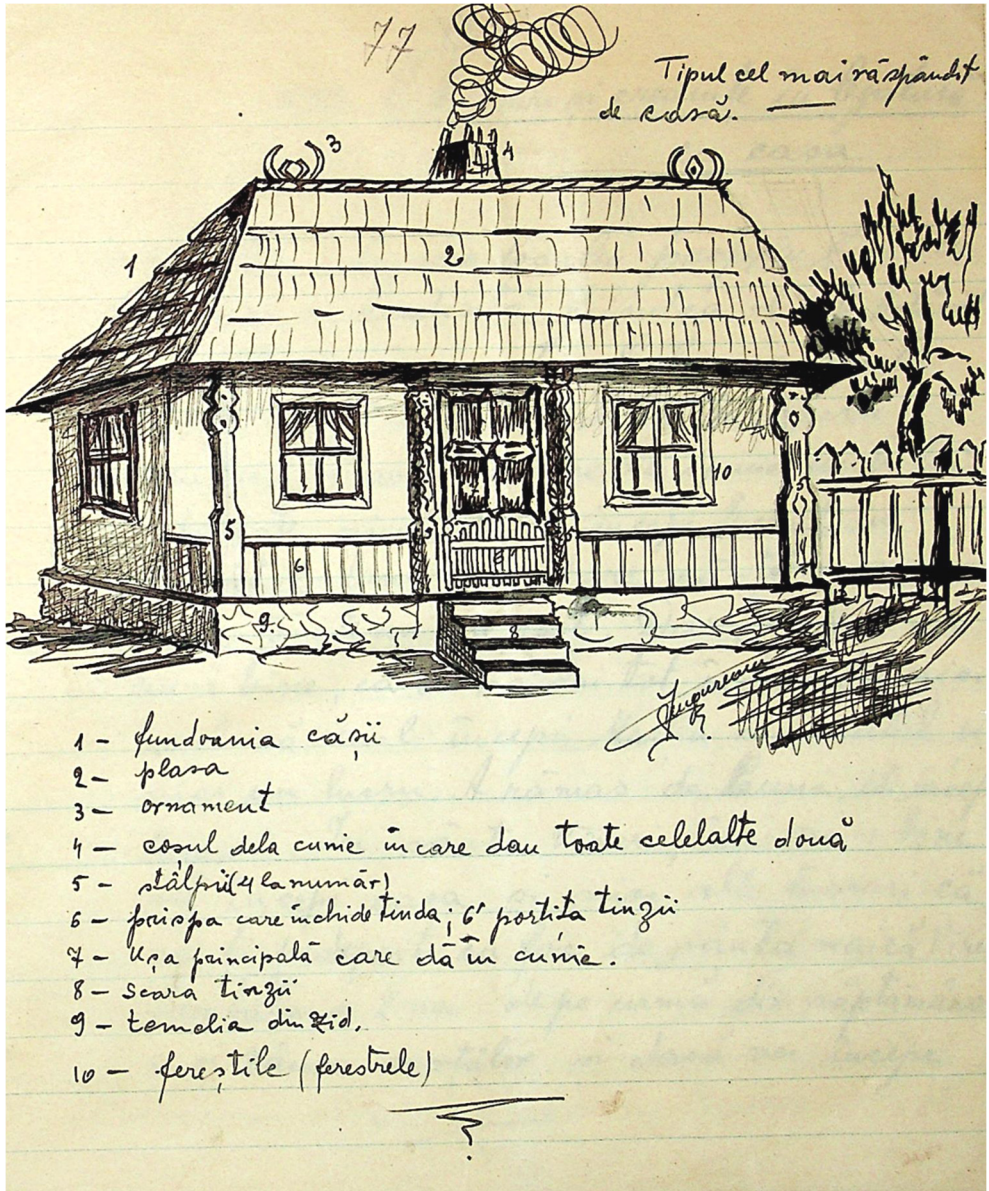 77
Tipul cel mai răspândit
de casă.
3
4
1
2
10
5
5
5
6
6'
9.
8
R.
1 - fundoania căsii
2 - plasa
3 - ornament
4 - coșul dela cunie în care dau toate celelalte două
5 - stâlpii (4 la număr)
6 - prispa care închide tinda; 6' portița tinzii
7 - Ușa principală care dă în cunie.
8 - scara tinzii
9 - temelia din zid.
10 - fereștile (ferestrele)